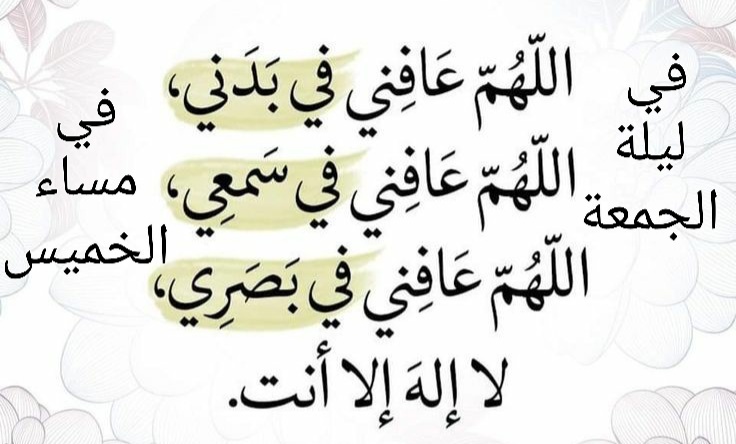 في
ليلة
الجمعة
اللّهُمّ عَافِني في بَدَني،
اللّهُمّ عَافِني في سَمعِي،
اللّهُمّ عَافِني في بَصَرِي،
لا إلهَ إلا أنت.
في
مساء
الخميس